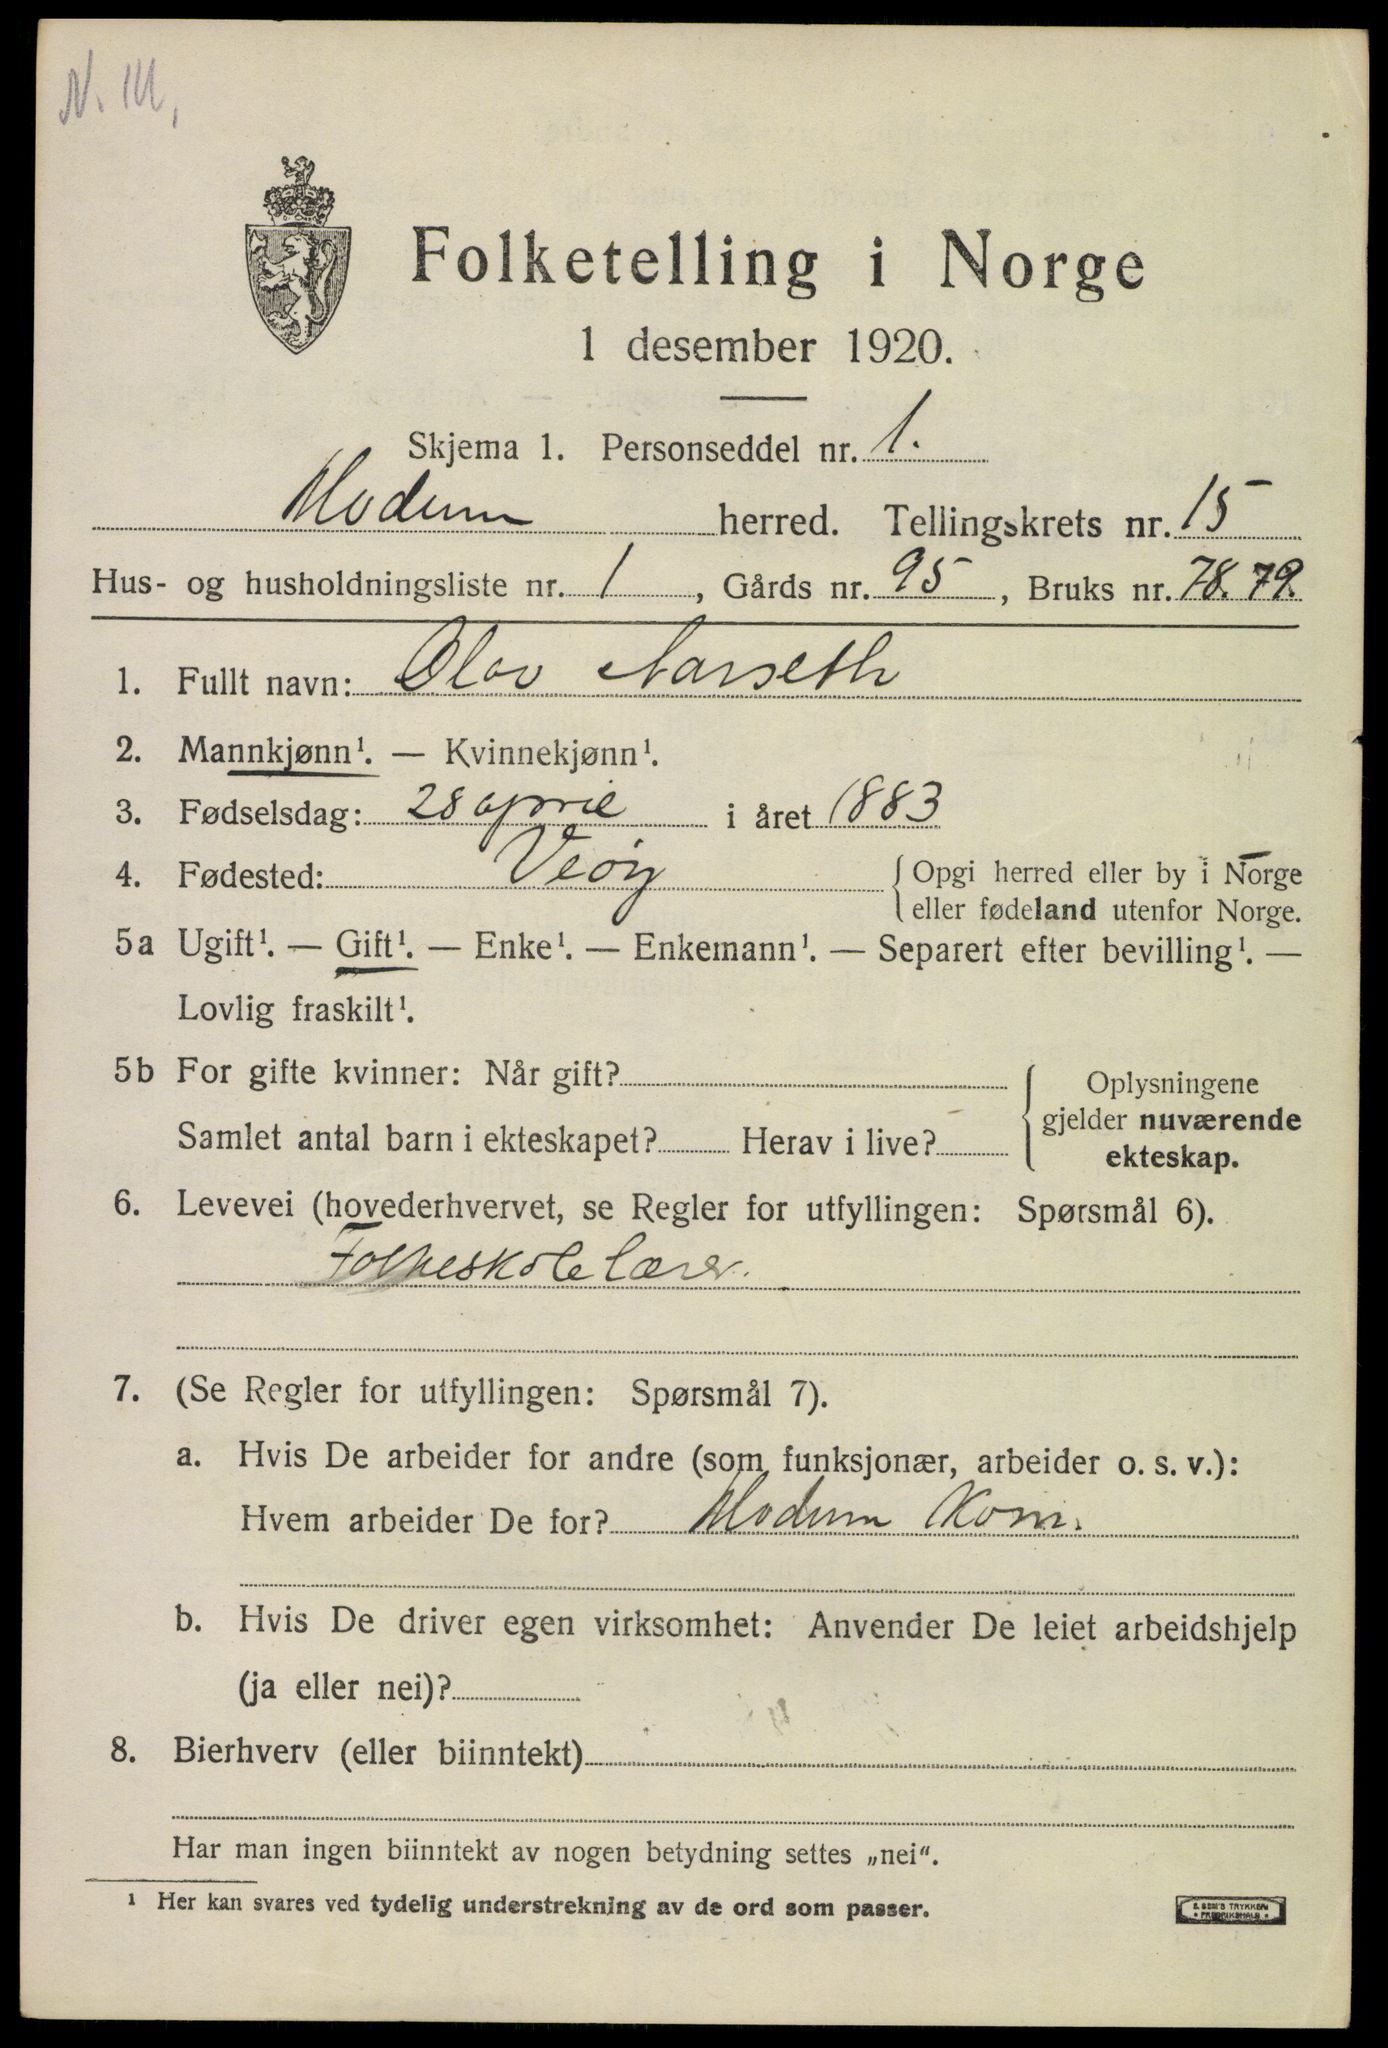 N. III.
Folketelling i Norge
1 desember 1920.
Skjema 1. Personseddel nr. 1.
Modum herred. Tellingskrets nr. 15
Hus- og husholdningsliste nr. 1, Gårds nr. 95, Bruks nr. 78.79.
1. Fullt navn: Olav Aarseth
2. Mannkjønn¹. — Kvinnekjønn¹.
3. Fødselsdag: 28 april i året 1883
4. Fødested: Veøy { Opgi herred eller by i Norge
eller fødeland utenfor Norge.
5a Ugift¹. — Gift¹. — Enke¹. — Enkemann¹. — Separert efter bevilling¹. —
Lovlig fraskilt¹.
5b For gifte kvinner: Når gift?
Samlet antal barn i ekteskapet? Herav i live?
{ Oplysningene
gjelder nuværende
ekteskap.
6. Levevei (hovederhvervet, se Regler for utfyllingen: Spørsmål 6).
Folkeskolelærer.
7. (Se Regler for utfyllingen: Spørsmål 7).
a. Hvis De arbeider for andre (som funksjonær, arbeider o. s. v.):
Hvem arbeider De for? Modum Kom.
b. Hvis De driver egen virksomhet: Anvender De leiet arbeidshjelp
(ja eller nei)?
8. Bierhverv (eller biinntekt)
Har man ingen biinntekt av nogen betydning settes „nei".
¹ Her kan svares ved tydelig understrekning av de ord som passer.
E. SEM'S TRYKKERI
* FREDRIKSHALD *